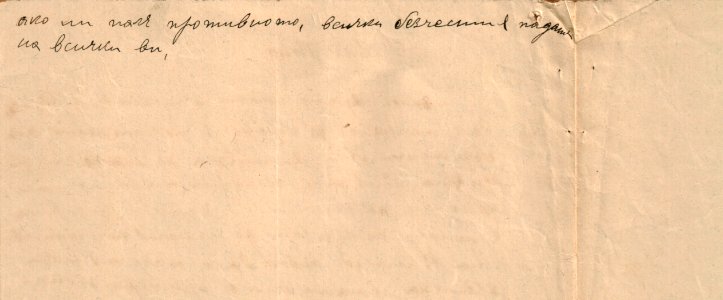 ако ли пак противното, всички безчестия падат
на всички ви,